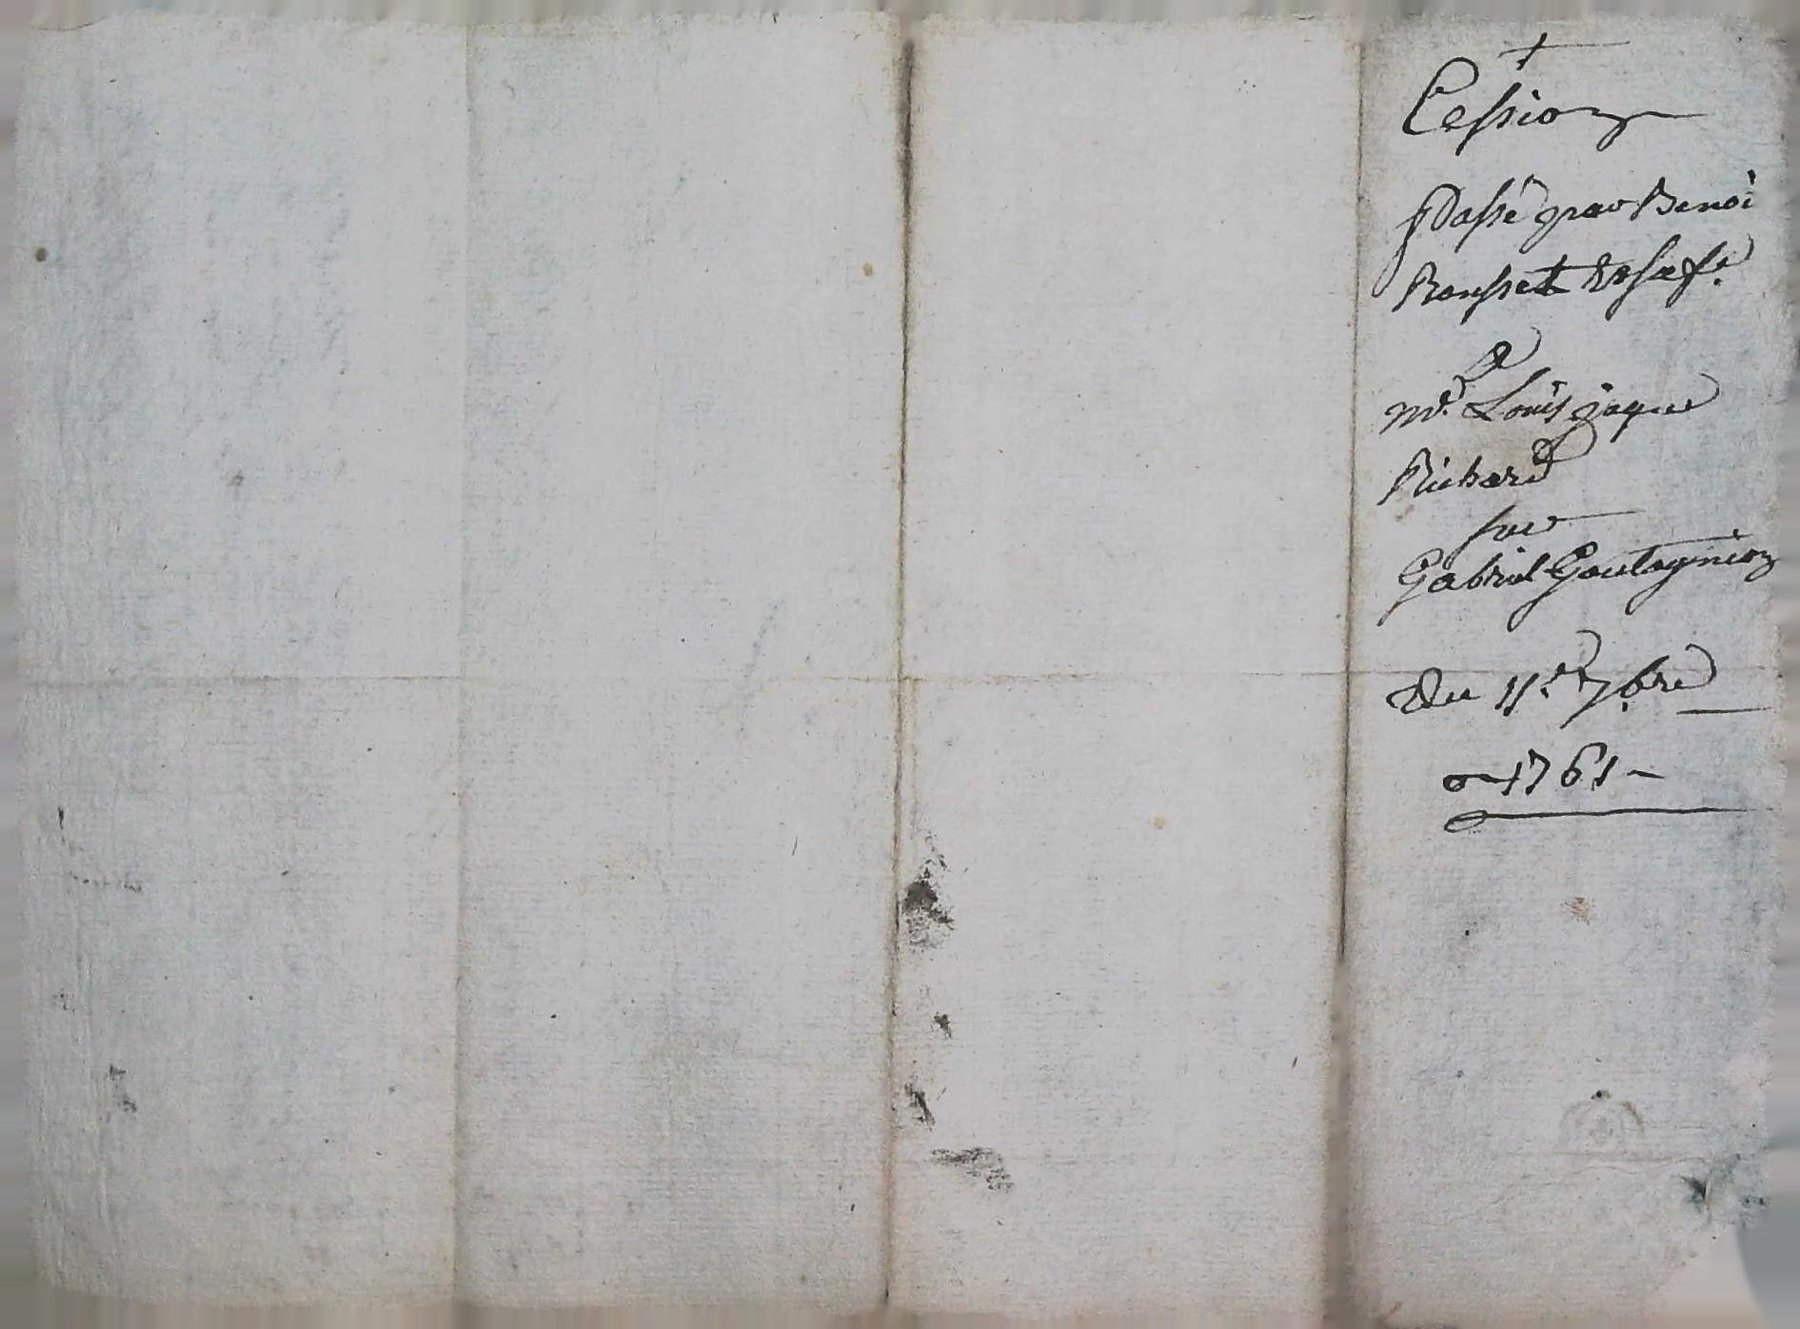 +
Cession
Passé par Benoi
Rousset & sa fe
a
Mr. Louis jaque
Richard
sur
Gabriel Goutagnion
Du 11e. 7bre
1761